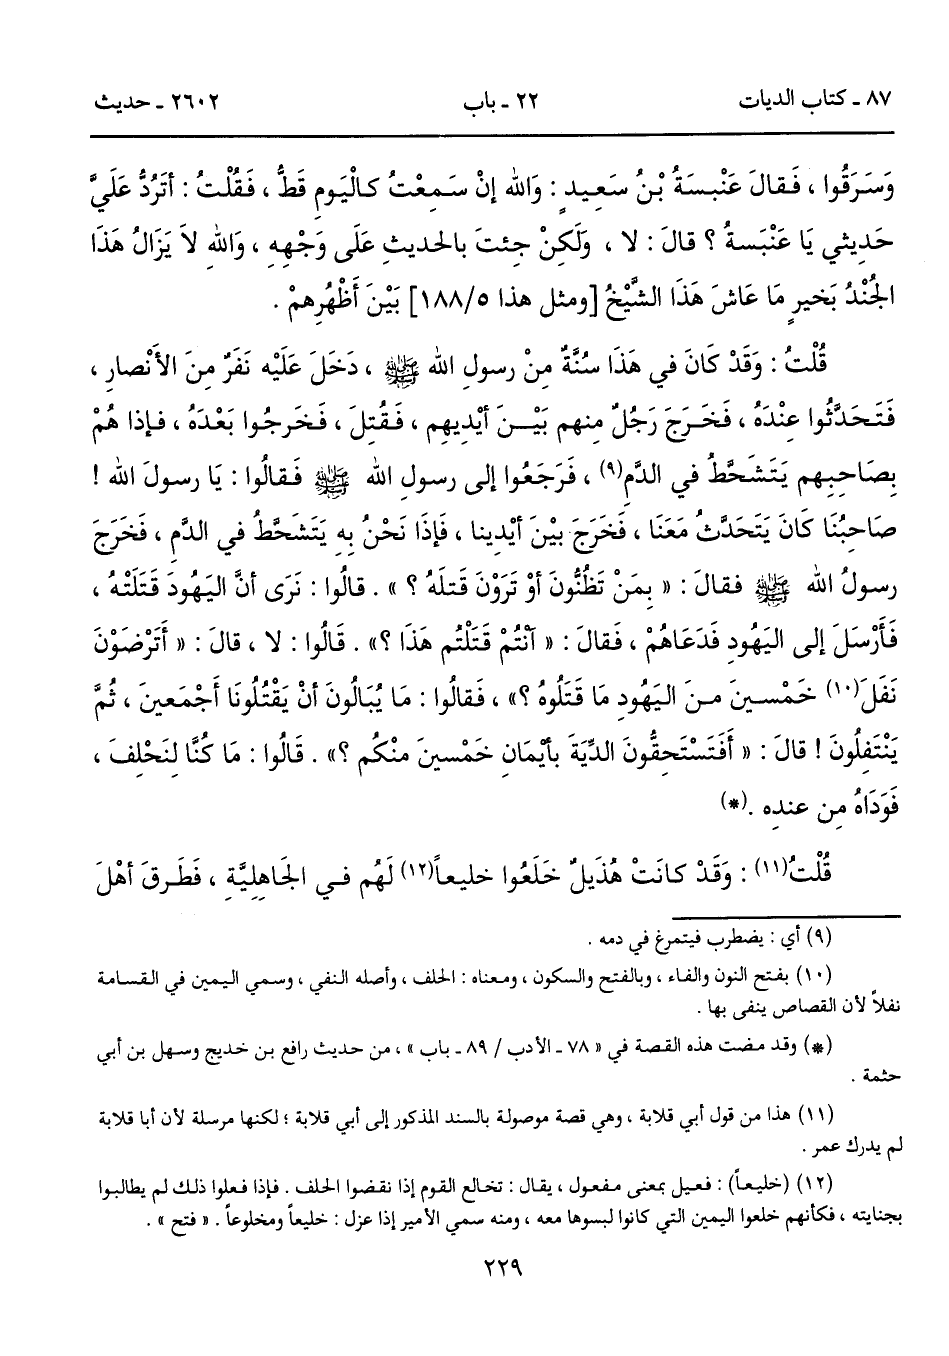 ٨٧ ـ كتاب الديات ٢٢ ـ باب ٢٦٠٢ ـ حديث
وَسَرَقُوا ، فَـقالَ عَنْبسَةُ بْنُ سَعِيـدٍ : وَالله إنْ سَـمِعْتُ كـالْيَومِ قَطُّ ، فَـقُلْتُ : أتَرُدُّ عَلَيَّ
حَدِيثي يَا عَنْبَسةُ ؟ قالَ : لا ، وَلَكِنْ جِئتَ بالحَديثِ عَلَى وَجْهِهِ ، وَاللهِ لاَ يَزَالُ هَذَا
الجُنْدُ بَخيرٍ مَا عَاشَ هَذَا الشَّيْخُ [ومثل هذا ١٨٨/٥] بَيْنَ أَظْهُرِهِمْ .
قُلْتُ : وَقَدْ كَانَ في هَذَا سُنَّةٌ مِنْ رسولِ الله ﷺ ، دَخَلَ عَلَيْه نَفَرٌ مِنَ الأَنْصارِ ،
فَتَـحَدَّثُوا عِنْدَهُ ، فَخَـرَجَ رَجُلٌ مِنهم بَيْـنَ أيْدِيهِم ، فَـقُتِلَ ، فَـخَرجُوا بَعْدَهُ ، فـإذا هُمْ
بِصَاحِبِهم يَتَشَحَّطُ في الدَّمِ(٩) ، فَرَجَعُوا إلى رسولِ الله ﷺ فَـقالُوا : يَا رسولَ الله !
صَاحِبُنَا كَانَ يَتَحَدَّثُ مَعَنَا ، فَخَرَجَ بيْنَ أيْدِينا ، فَإذَا نَحْنُ بِه يَتَشَحَّطُ في الدَّمِ ، فَخَرَجَ
رسولُ الله ﷺ فـقالَ : « بِمَنْ تَظُنُّونَ أوْ تَرَوْنَ قَتلَهُ ؟ » . قالُوا : نَرَى أنَّ اليَهُودَ قَتَلَتْهُ ،
فَأَرْسَلَ إلى اليَهُودِ فَدَعَاهُمْ ، فَقالَ : « آنْتُمْ قَتَلْتُم هَذَا ؟» . قَالُوا : لا ، قالَ : « أَتَرْضَوْنَ
نَفَلَ(١٠) خَمْسـينَ مـنَ اليَـهُودِ مَا قَتَلُوهُ ؟» ، فَـقالُوا : مَا يُبَالُونَ أنْ يَقْتُلُونَا أجْمَعينَ ، ثُمَّ
يَنْتَفِلُونَ ! قالَ : « أَفَتَسْتَحِقُّونَ الدِّيَةَ بأيْمَانِ خَمْسينَ مِنْكُم ؟» . قَالُوا : مَا كُنَّا لِنَحْلِفَ ،
فَوَدَاهُ مِن عندِه .(*)
قُلْتُ(١١) : وَقَدْ كانَتْ هُذَيلٌ خَلَعُوا خليعاً(١٢) لَهُم فـي الجَاهِليَّةِ ، فَطَرقَ أهْلَ
(٩) أي : يضطرب فيتمرغ في دمه .
(١٠) بفتح النون والفاء ، وبالفتح والسكون ، ومعناه : الحلف ، وأصله النفي ، وسمي اليمين في القسامة
نفلاً لأن القصاص ينفى بها .
(*) وقد مضت هذه القصة في « ٧٨ ـ الأدب / ٨٩ ـ باب » ، من حديث رافع بن خديج وسهل بن أبي
حثمة .
(١١) هذا من قول أبي قلابة ، وهي قصة موصولة بالسند المذكور إلى أبي قلابة ؛ لكنها مرسلة لأن أبا قلابة
لم يدرك عمر .
(١٢) (خليعاً) : فعيل بمعنى مفعول ، يقال : تخالع القوم إذا نقضوا الحلف . فإذا فعلوا ذلـك لم يطالبـوا
بجنايته ، فكأنهم خلعوا اليمين التي كانوا لبسوها معه ، ومنه سمي الأمير إذا عزل : خليعاً ومخلوعاً . « فتح » .
٢٢٩